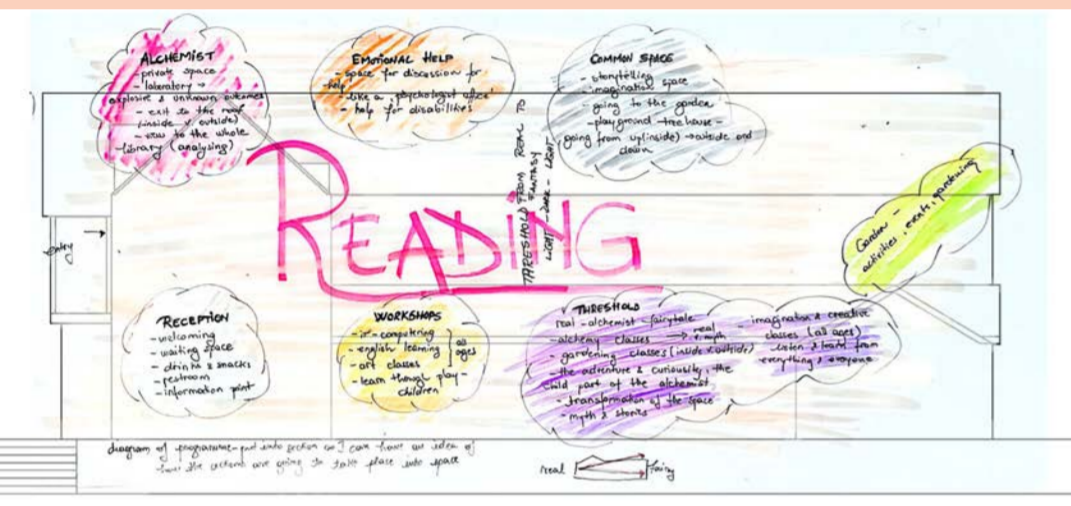 ALCHEMIST
- private space
- laboratory →
explosive & unknown outcomes
- exit to the roof
(inside v. outside)
- view to the whole
library (analysing)
EMOTIONAL HELP
- space for discussion for
help
- like a 'psychologist office'
- help for disabilities
COMMON SPACE
- storytelling
- imagination space
- going to the garden
- playground - tree house -
going from up(inside) → outside and
down
THRESHOLD FROM REAL TO
FANTASY
LIGHT - DARK - LIGHT
READING
entry
Garden -
activities, events, gardening
RECEPTION
- welcoming
- waiting space
- drinks & snacks
- restroom
- information point
WORKSHOPS
- it - computering
- english learning
- art classes
- learn though play -
children
all
ages
THRESHOLD
real - alchemist - fairytale
- alchemy classes → real
v. myth
- gardening classes (inside v outside)
- the adventure & curiousity, the
child part of the alchemist
- transformation of the space
- myth & stories
- imagination & creative
classes (all ages)
- listen & learn from
everything & everyone
diagram of programme - put into section so I can have an idea of
how the actions are going to take place into space
real
fairy